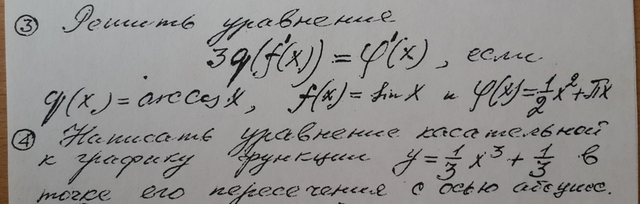 ③ Решить уравнение
3φ(f'(x)) = φ'(x), если
φ(x) = arccos x, f(x) = sin x и φ(x) = 1/2 x² + πx
④ Написать уравнение касательной
к графику функции y = 1/3 x³ + 1/3 в
точке его пересечения с осью абсцисс.